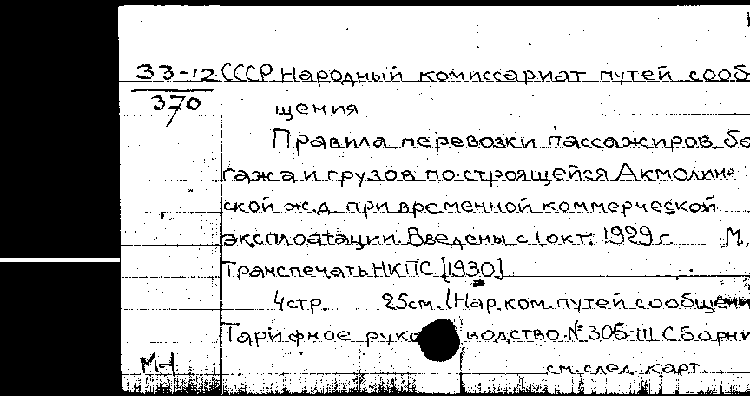 33-12 СССР Народный комиссариат путей сооб
370 щения
Правила перевозки пассажиров ба
гажа и грузов по строящейся Акмолин
ской ж.д. при временной коммерческой
эксплоатации. Введены с 1 окт. 1929 г. М.
Транспечать НКПС [1930]
4 стр. 25 см. (Нар. ком. путей сообщения
Тарифное руководство № 305-III Сборни
М-1 см. след. карт.